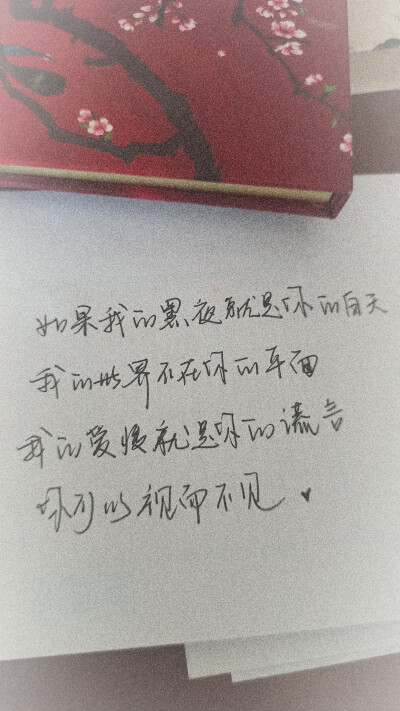 如果我的黑夜就是你的白天
我的世界不在你的平面
我的爱恨就是你的谎言
你可以视而不见